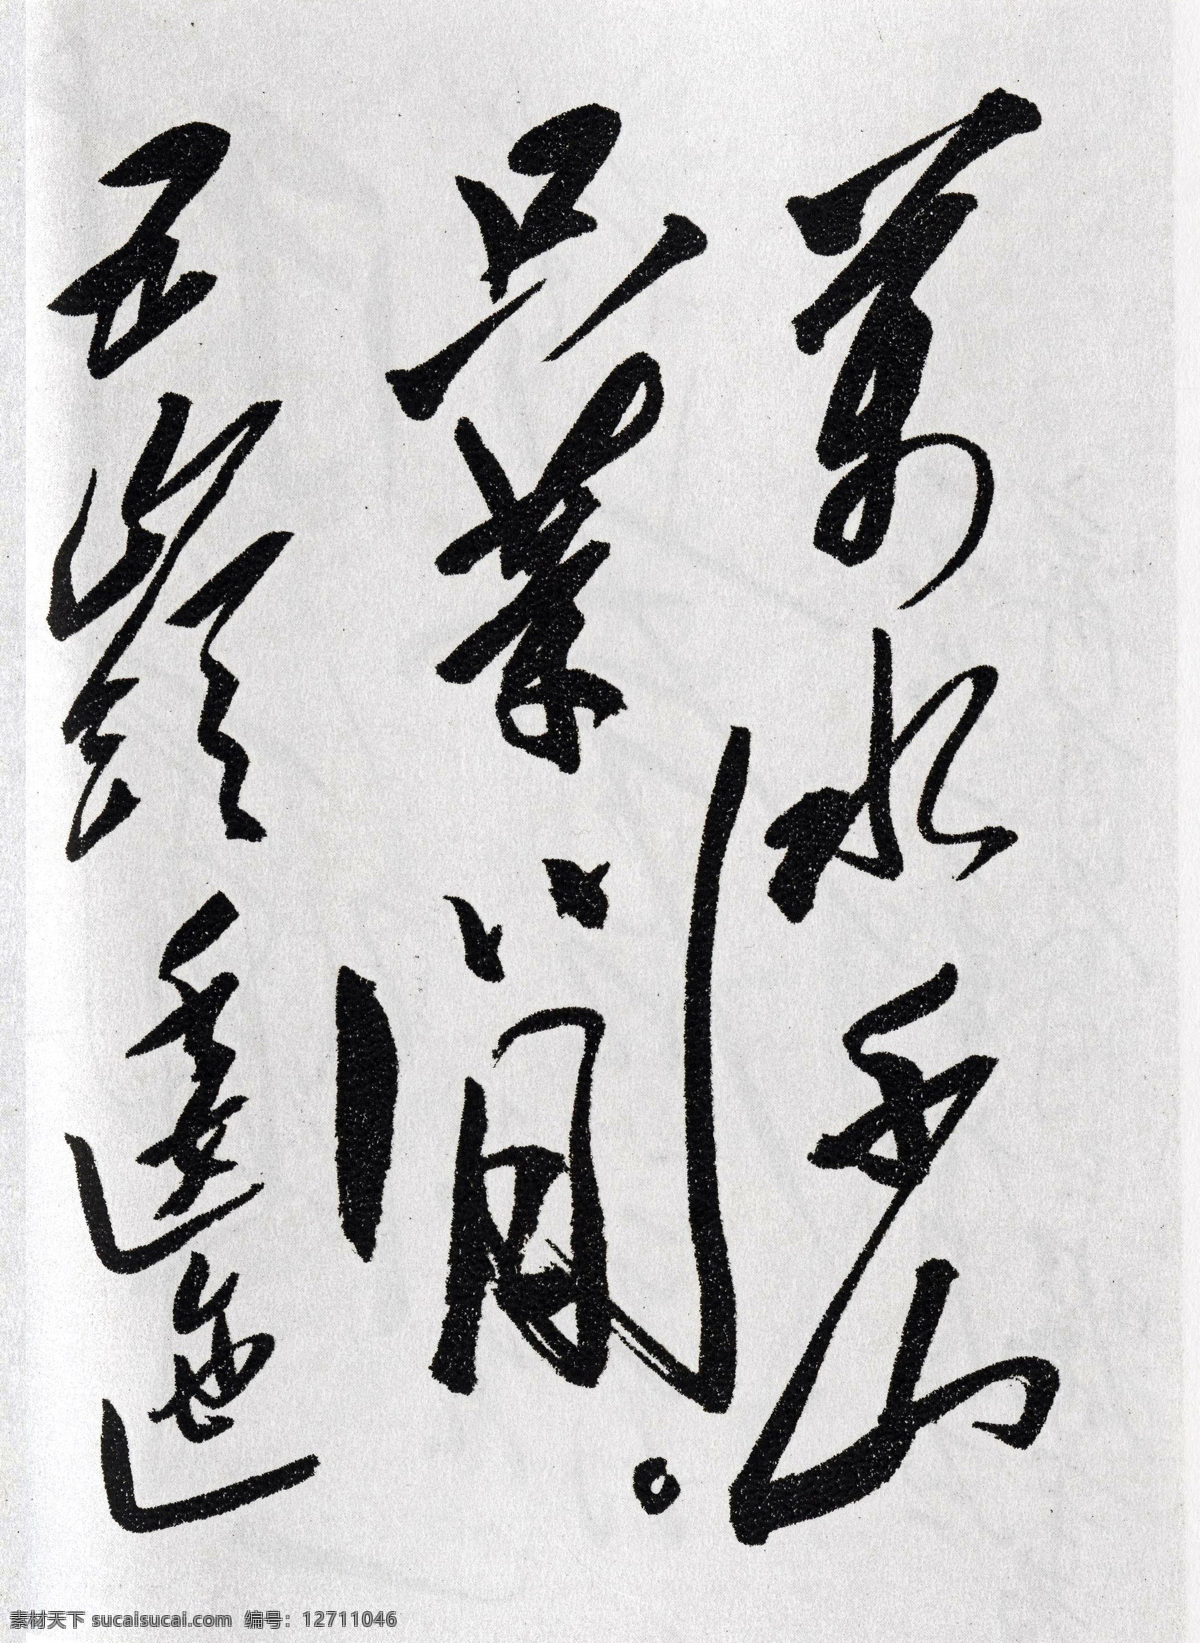 萬水千山
只等閒。
五嶺逶迤
素材天下 sucaisucai.com 编号：12711046